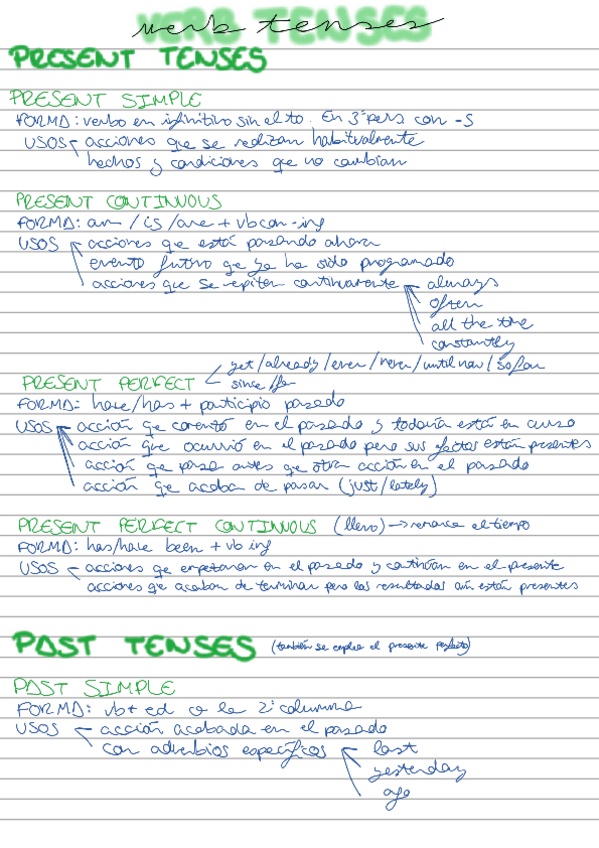 verb tenses
VERB TENSES
PRESENT TENSES
PRESENT SIMPLE
FORMA: verbo en infinitivo sin el to. En 3ª pers con -S
USOS acciones que se realizan habitualmente
hechos y condiciones que no cambian
PRESENT CONTINUOUS
FORMA: am / is / are + vb con -ing
USOS acciones que está pasando ahora
evento futuro que ya ha sido programado
acciones que se repiten continuamente always
often
all the time
constantly
yet/already/ever/never/until now/so far
PRESENT PERFECT since/for
FORMA: have/has + participio pasado
USOS acción que comenzó en el pasado y todavía está en curso
acción que ocurrió en el pasado pero sus efectos están presentes
acción que pasa antes que otra acción en el pasado
acción que acaban de pasar (just/lately)
PRESENT PERFECT CONTINUOUS (llevo) → remarca el tiempo
FORMA: has/have been + vb ing
USOS acciones que empezaron en el pasado y continúan en el presente
acciones que acaban de terminar pero los resultados aún están presentes
PAST TENSES (también se emplea el presente perfecto)
PAST SIMPLE
FORMA: vb + ed o la 2ª columna
USOS acción acabada en el pasado
con adverbios específicos last
yesterday
ago